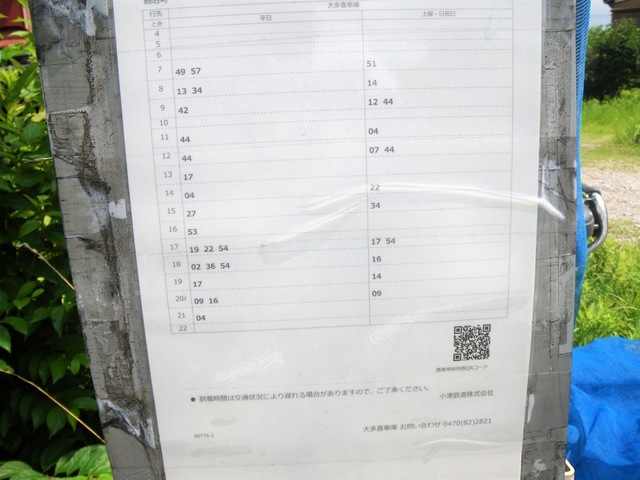 行先 大多喜車庫
とき 平日 土曜・日祝日
4
5
6
7 49 57 51
8 13 34 14
9 42 12 44
10
11 44 04
12 44 07 44
13 17
14 04 22
15 27 34
16 53
17 19 22 54 17 54
18 02 36 54 16
19 17 14
20 09 16 09
21 04
22
携帯用時刻表QRコード
● 到着時間は交通状況により遅れる場合がありますので、ご了承ください。 小湊鉄道株式会社
00776-2 大多喜車庫 お問い合わせ 0470(82)2821